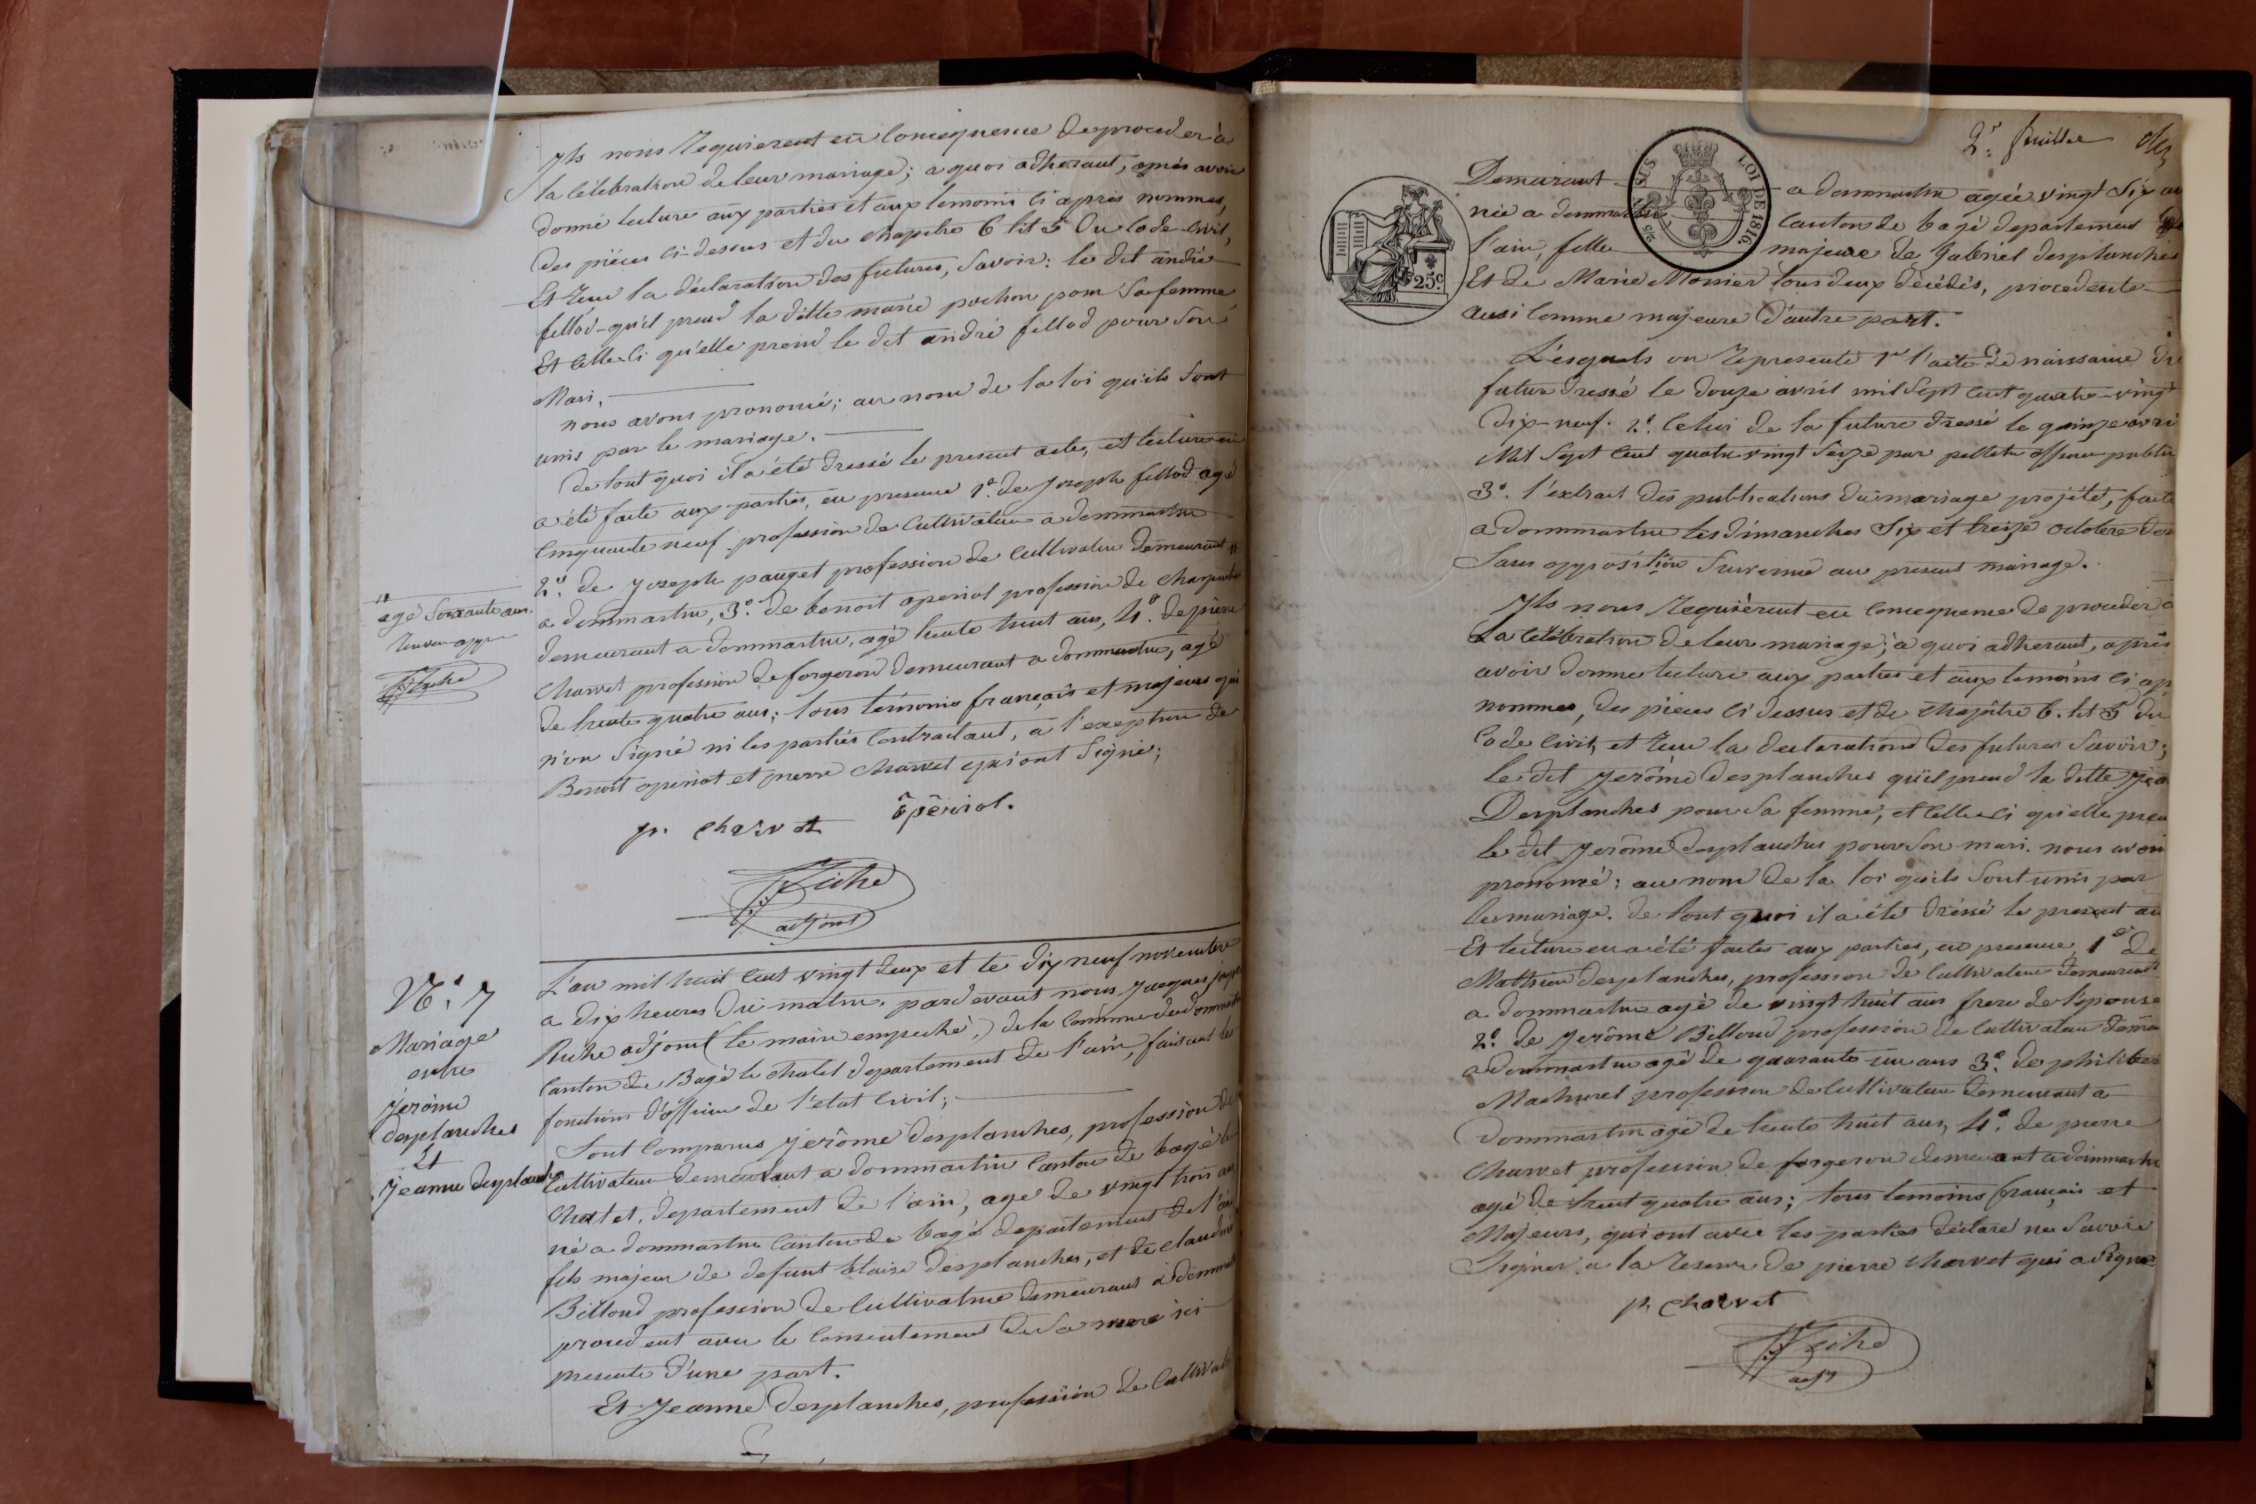 Ils nous Requierent en Consequence de proceder à
la Célébration de leur mariage; a quoi adherant, après avoir
donné lecture aux parties et aux temoins ci après nommés,
des pièces ci-dessus et du chapitre 6 tit 5 Du Code Civil,
Et Reçu la déclaration des futures, Savoir: le dit andré
fellod qu'il prend la ditte marie pochon pour Sa femme
Et Celle-ci qu'elle prend le dit andré fellod pour Son
Mari.
nous avons prononcé; au nom de la loi qu'ils Sont
unis par le mariage.
De tout quoi il a été dressé le present acte, et lecture en
a été faite aux parties, en presence 1° de Joseph fellod agé
Cinquante neuf profession de Cultivateur a dommartin
2° de Joseph pauget profession de Cultivateur demeurant "
a dommartin, 3° de benoit operiol profession de Charpentier
demeurant a dommartin, agé trente huit ans, 4° de pierre
Charvet profession de forgeron demeurant a dommartin, agé
de trente quatre ans; tous témoins français et majeurs qui
n'on Signé ni les parties Contractant, a l'exeption de
Benoit operiol et pierre Charvet qui ont Signé;
"
agé Soixante ans.
p. charvet
opêriol.
adjoint
N° 7
Mariage
entre
Jerôme
desplanches
Et
Jeanne desplanches
L'an mil huit Cent vingt deux et le dix neuf novembre
a dix heures du matin, pardevant nous Jacques joseph
adjoint (le maire empeché,) de la Commune de dommartin
Canton de Bagé le chatel département de l'ain, faisant les
fonctions d'officier de l'etat Civil;
Sont Comparus Jerôme Desplanches, profession de
Cultivateur demeurant a dommartin Canton de bagé le
chatel, département de l'ain, agé de vingt trois ans
né a dommartin Canton de bagé departement de l'ain
fils majeur de defunt blaise desplanches, et de claudine
Billoud profession de Cultivatrice demeurant a dommartin
procedent avec le Consentement de Sa mere ici
presente d'une part.
Et Jeanne Desplanches, profession de Cultivatrice
2e feuille
LOI DE 1816.
25c
Demeurant a dommartin agée vingt Six ans
née a dommartin Canton de bagé departement de
l'ain, fille majeure de Gabriel desplanches
Et de Marie Monier tous deux décédés, procedente
aussi Comme majeure d'autre part.
Lesquels on Representé 1° l'acte de naissance du
futur dressé le douze avril mil Sept Cent quatre-vingt
Dix-neuf. 2° Celui de la future dressé le quinze avril
Mil Sept Cent quatre vingt Seize par officier public
3° l'extrait des publications du mariage projété, faite
a dommartin les dimanches Six et treize octobre
Sans opposition Survenue au present mariage.
Ils nous Requièrent en Consequence de proceder a
La Célébration de leur mariage; à quoi adherant, après
avoir donné lecture aux parties et aux temoins ci ap
nommes, des pièces ci dessus et de chapitre 6. tit 5 du
Code Civil, et Reçu la declaration des futures Savoir;
le dit Jerôme desplanches qu'il prend la ditte Jea
Desplanches pour Sa femme, et Celle-ci qu'elle pren
le dit Jerôme Desplanches pour Son mari. nous avons
prononcé: au nom de la loi qu'ils Sont unis par
le mariage. de tout quoi il a été dréssé le present ac
Et lecture en a été faites aux parties, en presence, 1° de
Mathieu desplanches, profession de Cultivateur demeurant
a dommartin agé de vingt huit ans frere de l'épouse
2° de Jerôme Billoud profession de Cultivateur dem
a dommartin agé de quarante un ans 3° de philibert
Machuret profession de Cultivateur demeurant a
Dommartin agé de trente huit ans, 4° de pierre
Charvet profession de forgeron demeurant a dommartin
agé de trent quatre ans; tous temoins français et
Majeurs, qui ont avec les parties déclaré ne Savoir
Signer a la Reserve de pierre charvet qui a Signé
p. charvet